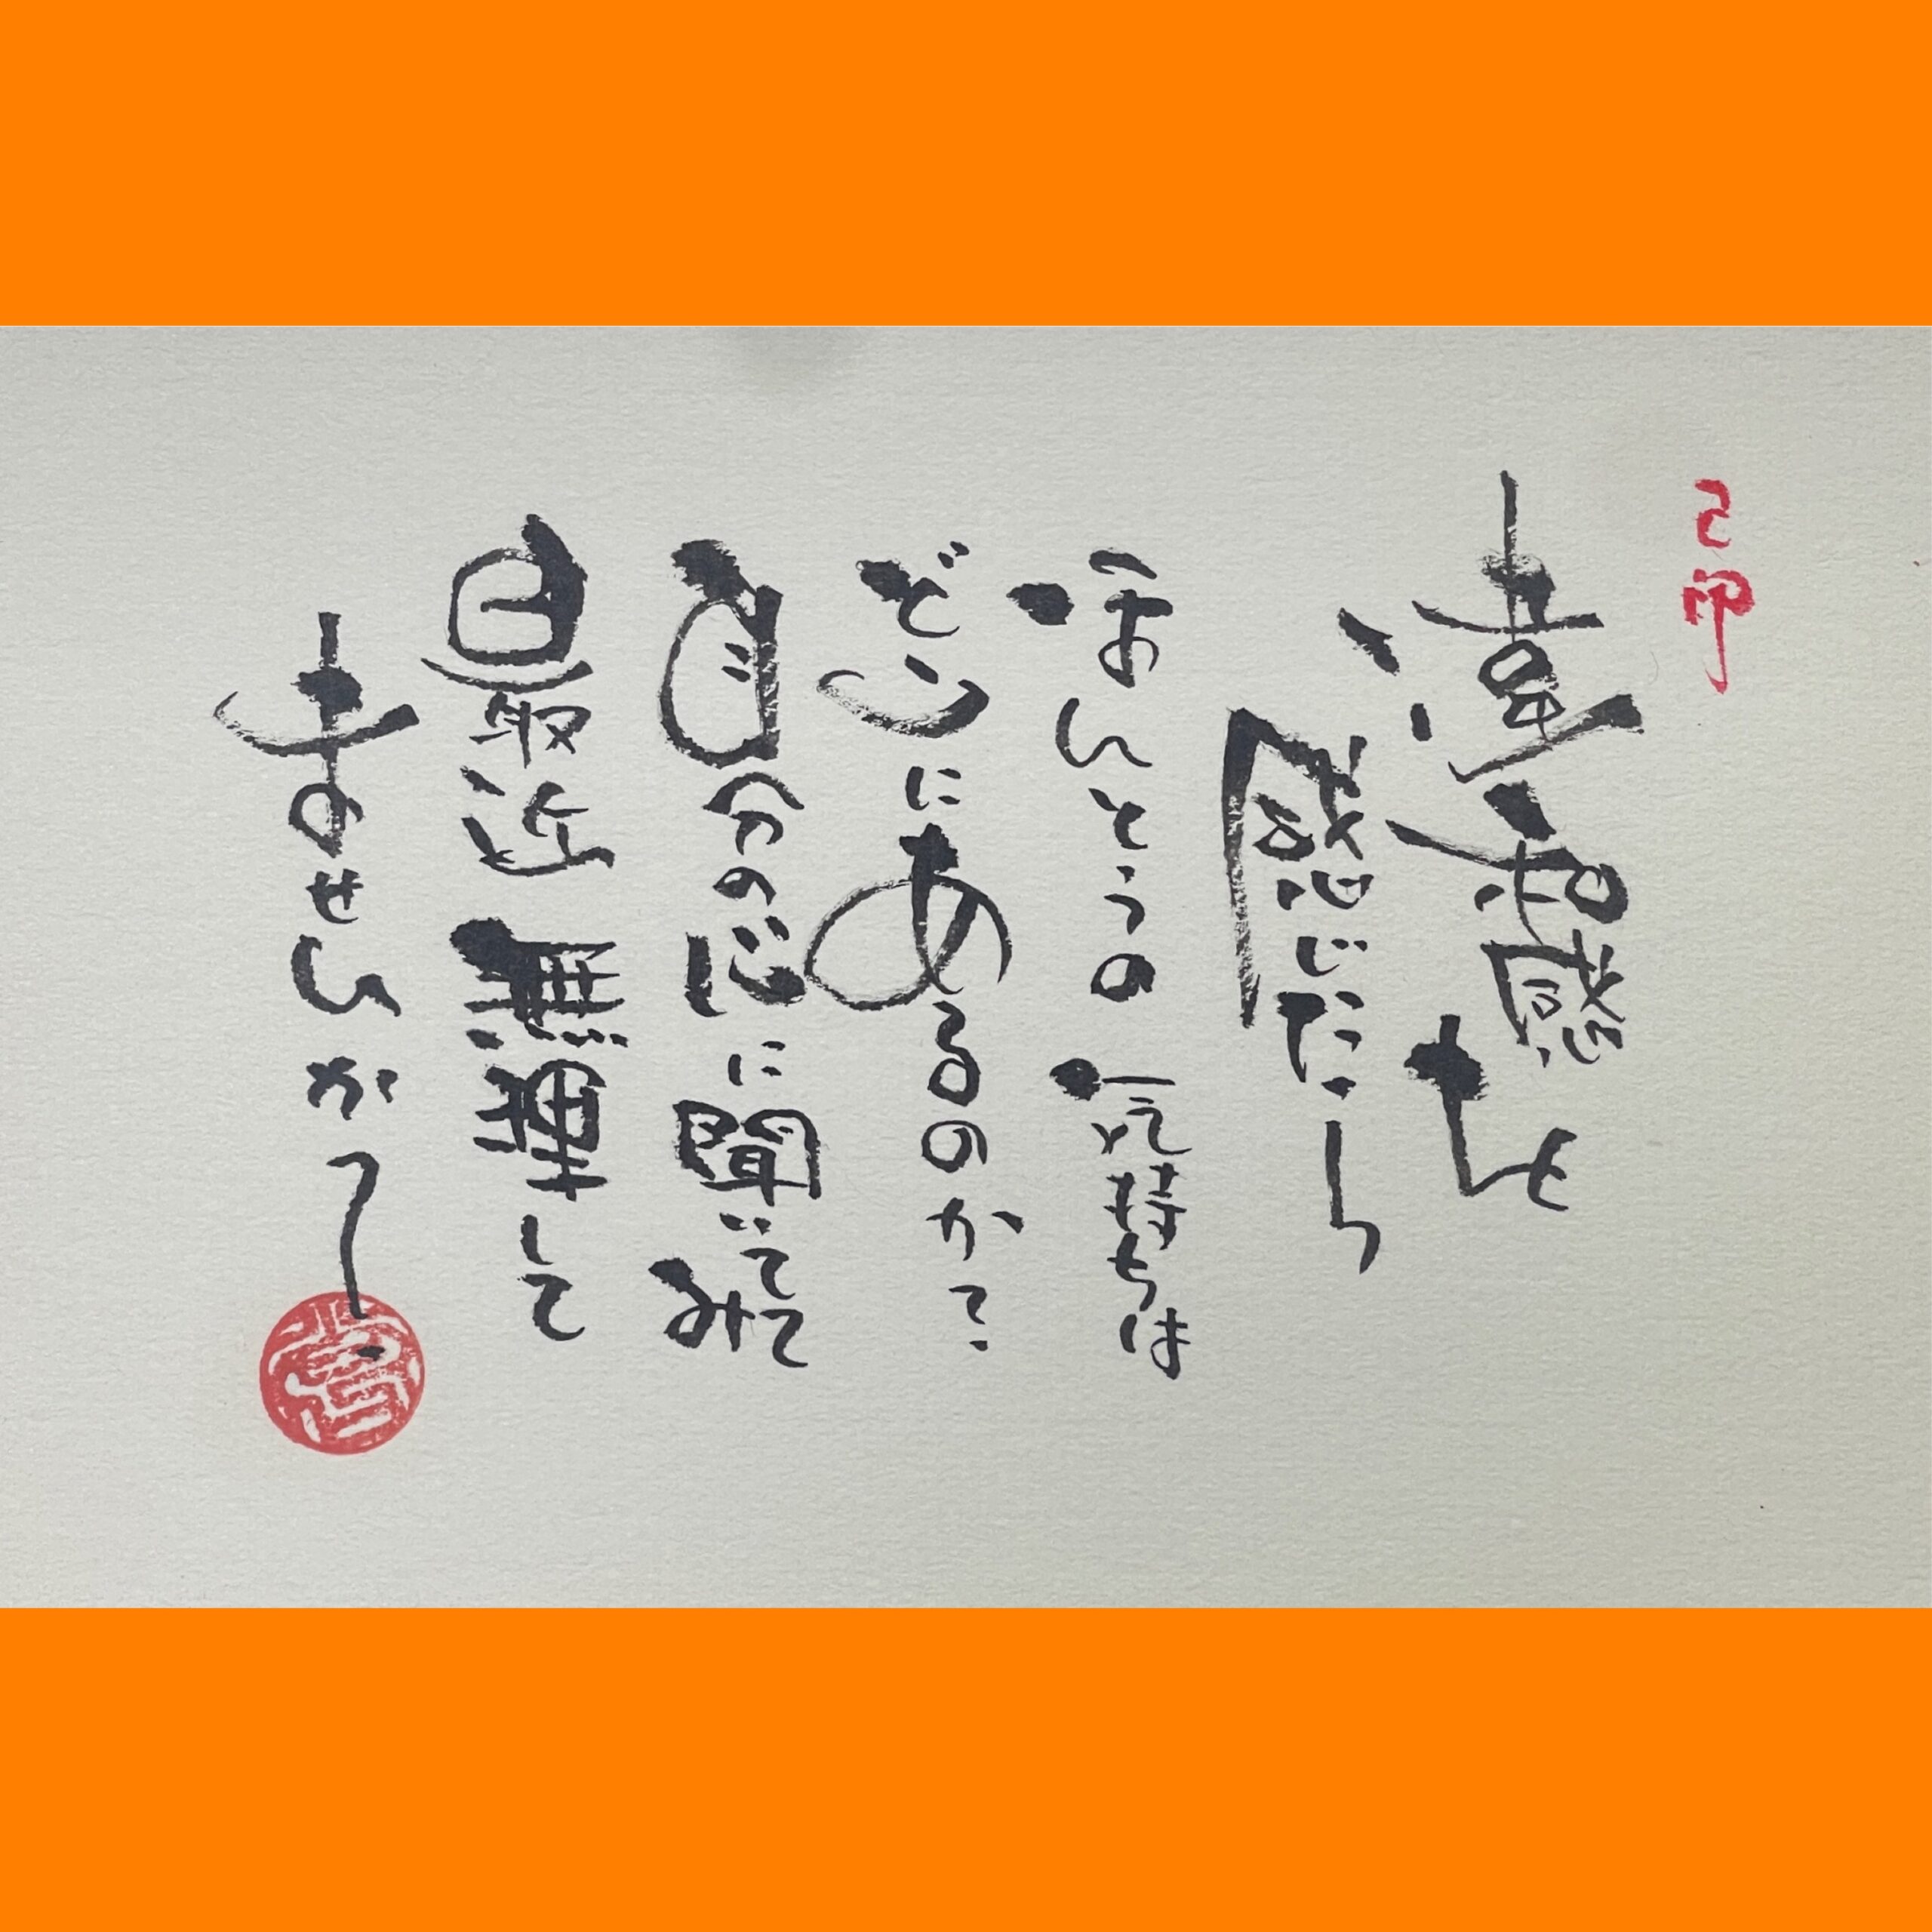 己卯
違和感を
感じたら
ほんとうの 気持ちは
どこにあるのか?
自分の心に聞いてみて
最近 無理して
ませんか?